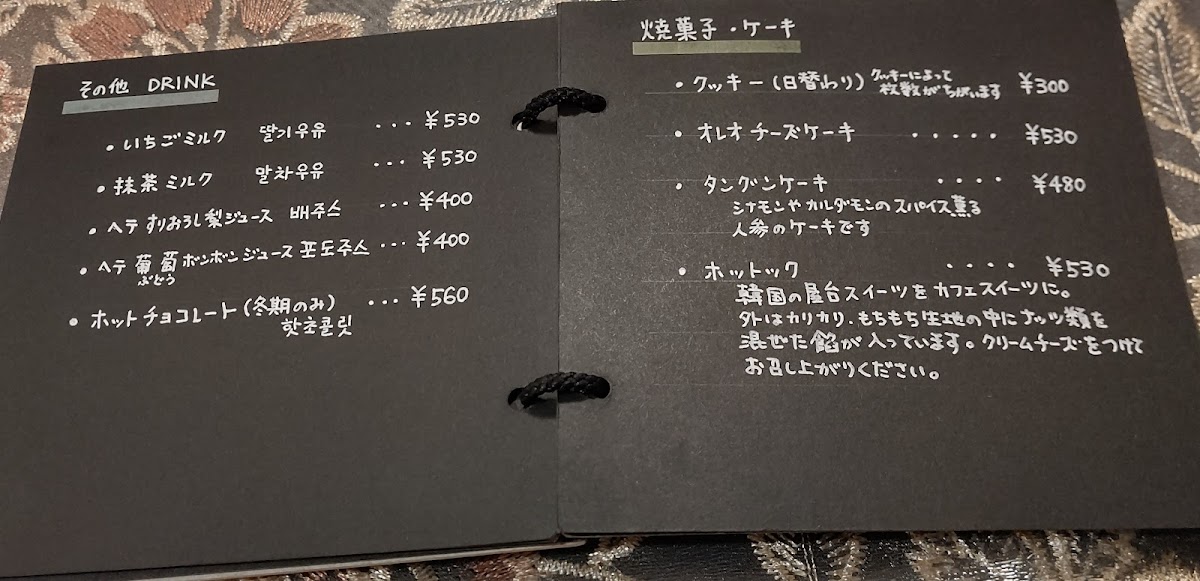 その他 DRINK
・いちごミルク 딸기우유 ・・・ ¥530
・抹茶ミルク 말차우유 ・・・ ¥530
・ヘテ すりおろし梨ジュース 배주스 ・・・ ¥400
・ヘテ 葡萄ボンボンジュース 포도주스 ・・・ ¥400
ぶどう
・ホットチョコレート(冬期のみ) ・・・ ¥560
핫초콜릿
焼菓子・ケーキ
・クッキー(日替わり) クッキーによって ¥300
枚数がちがいます
・オレオチーズケーキ ・・・・・ ¥530
・タングンケーキ ・・・・ ¥480
シナモンやカルダモンのスパイス薫る
人参のケーキです
・ホットック ・・・・ ¥530
韓国の屋台スイーツをカフェスイーツに。
外はカリカリ・もちもち生地の中にナッツ類を
混ぜた餡が入っています。クリームチーズをつけて
お召し上がりください。